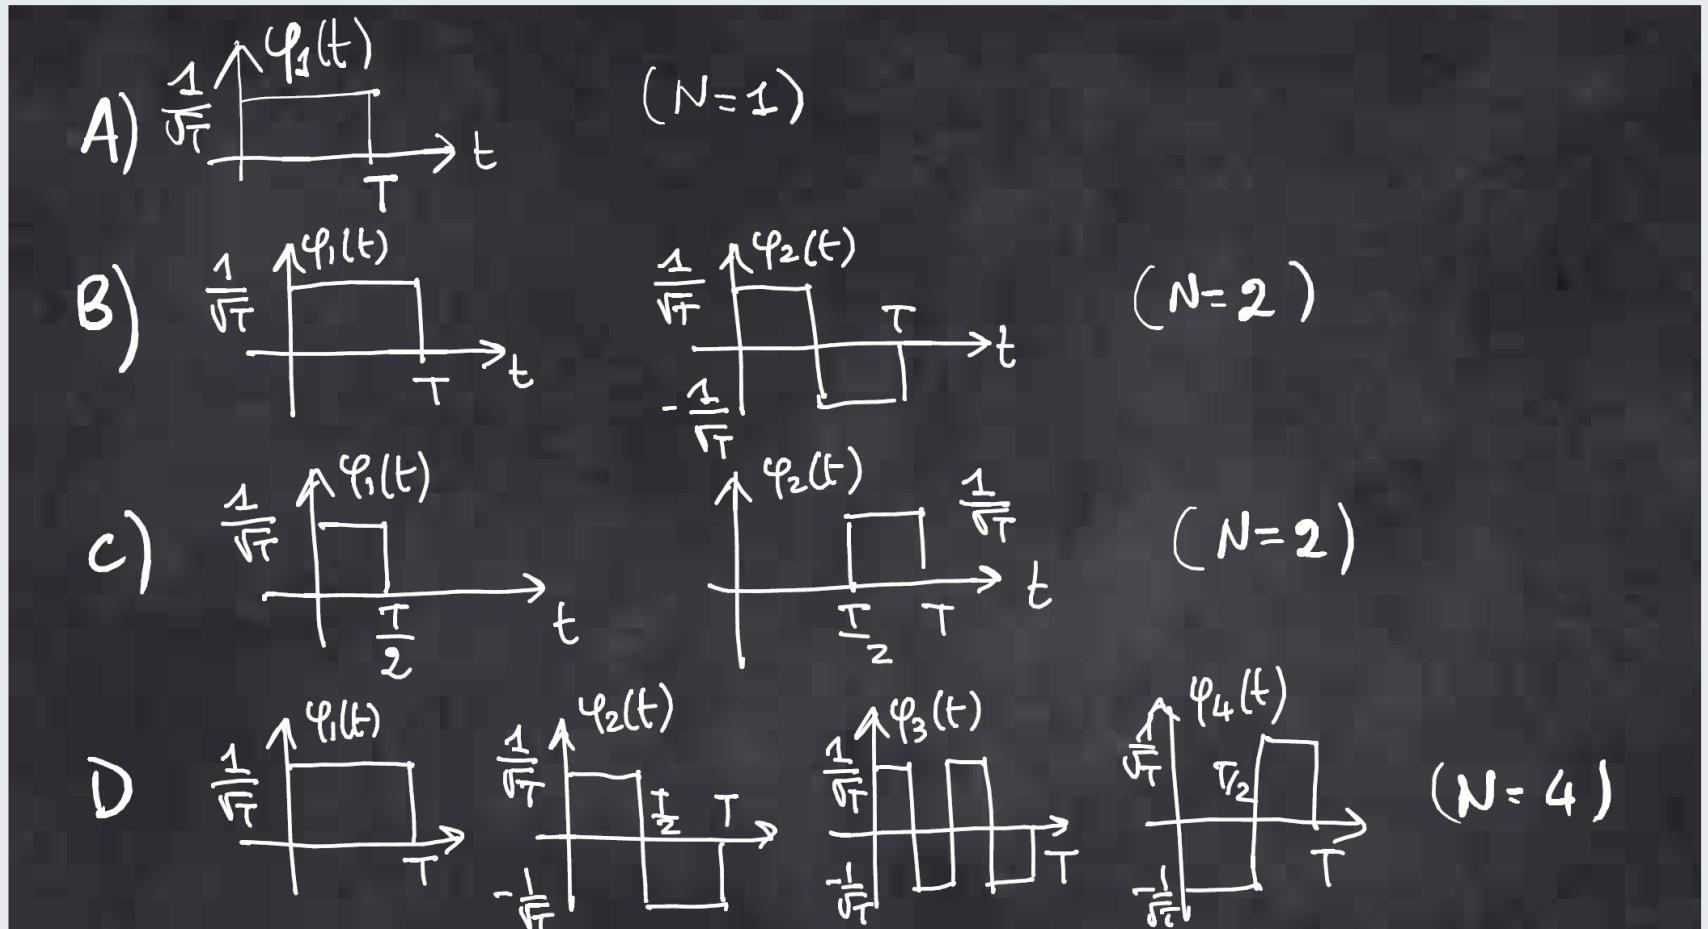 A) 1/√T φ1(t) T t (N=1)
B) 1/√T φ1(t) T t 1/√T -1/√T φ2(t) T t (N=2)
C) 1/√T φ1(t) T/2 t φ2(t) 1/√T T/2 T t (N=2)
D 1/√T φ1(t) T 1/√T -1/√T φ2(t) T/2 T 1/√T -1/√T φ3(t) T 1/√T -1/√T φ4(t) T/2 T (N=4)